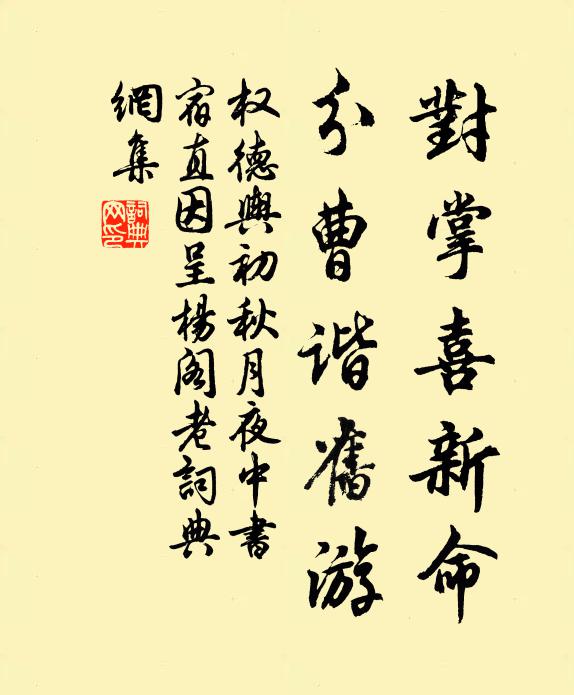 對掌喜新命
分曹谐舊游
权德輿初秋月夜中書
宿直因呈楊阁老詞典
網集
詞典
网印